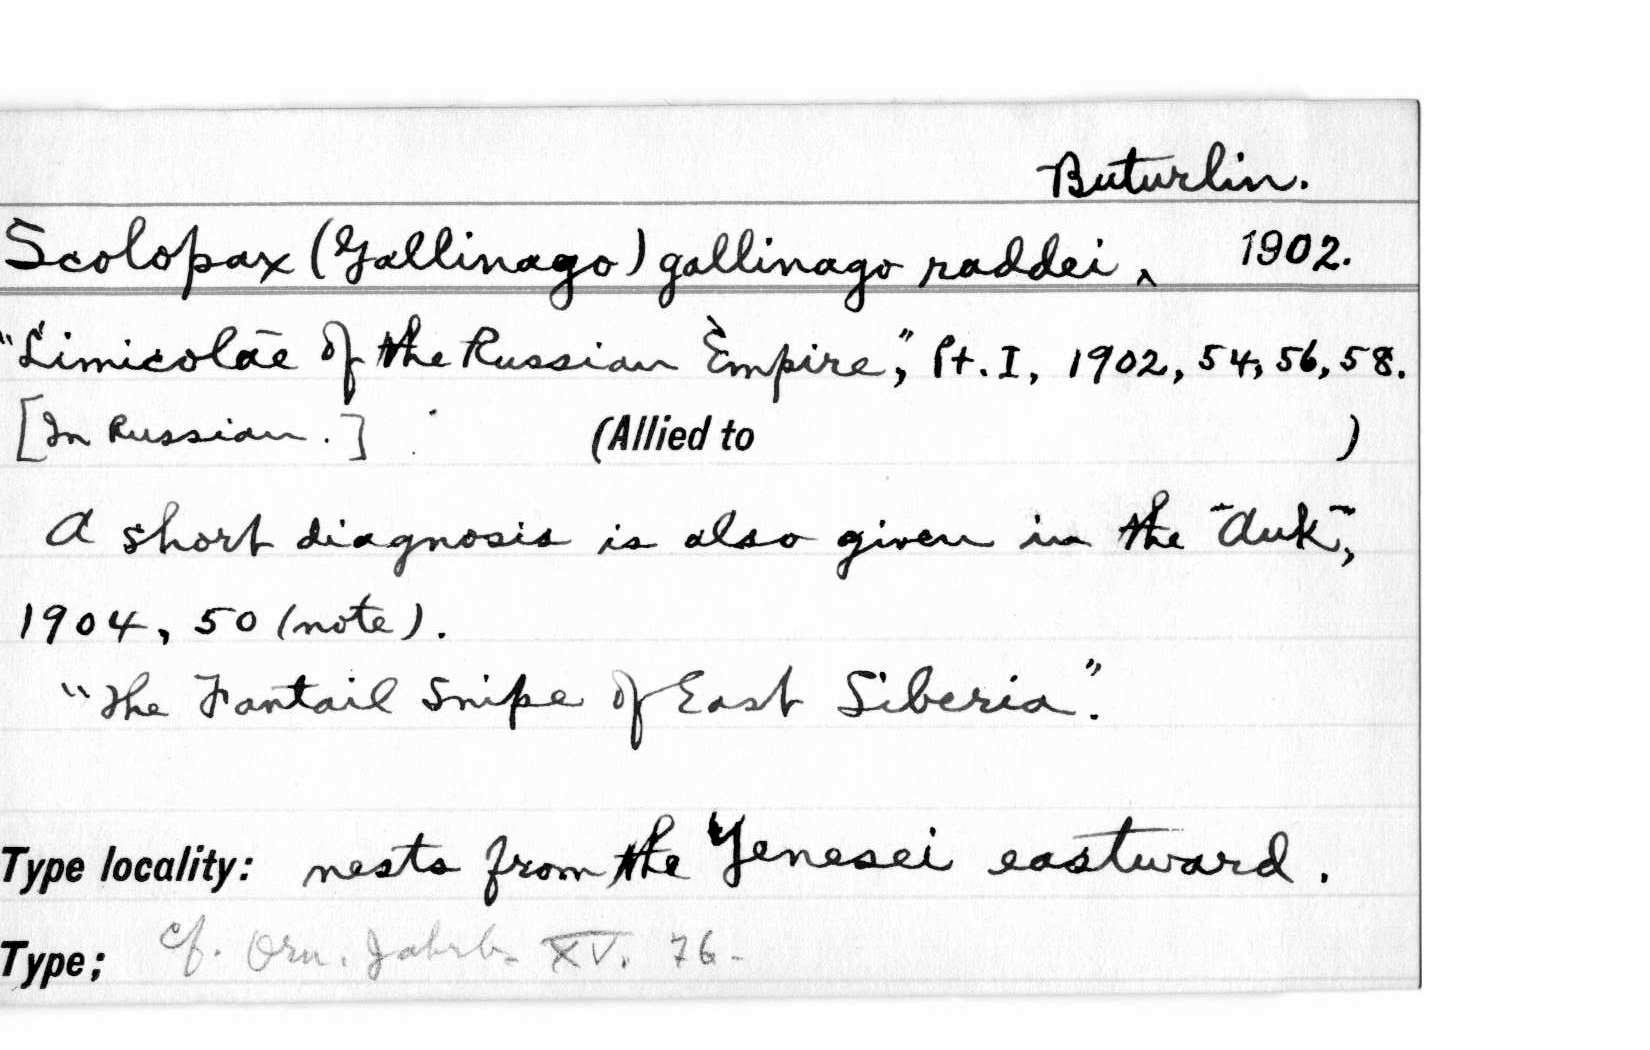 Buturlin.
Scolopax (Gallinago) gallinago raddei ‸ 1902.
"Limicolae of the Russian Empire," Pt. I, 1902, 54, 56, 58.
[In Russian.] (Allied to )
A short diagnosis is also given in the "Auk",
1904, 50 (note).
"The Fantail Snipe of East Siberia".
Type locality: nests from the Yenesei eastward.
Type; cf. Orn. Jahrb. XV. 76.